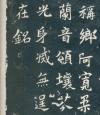 稱鄉阿寬柔
蘭音頌壤
光身滅無遅
在銘